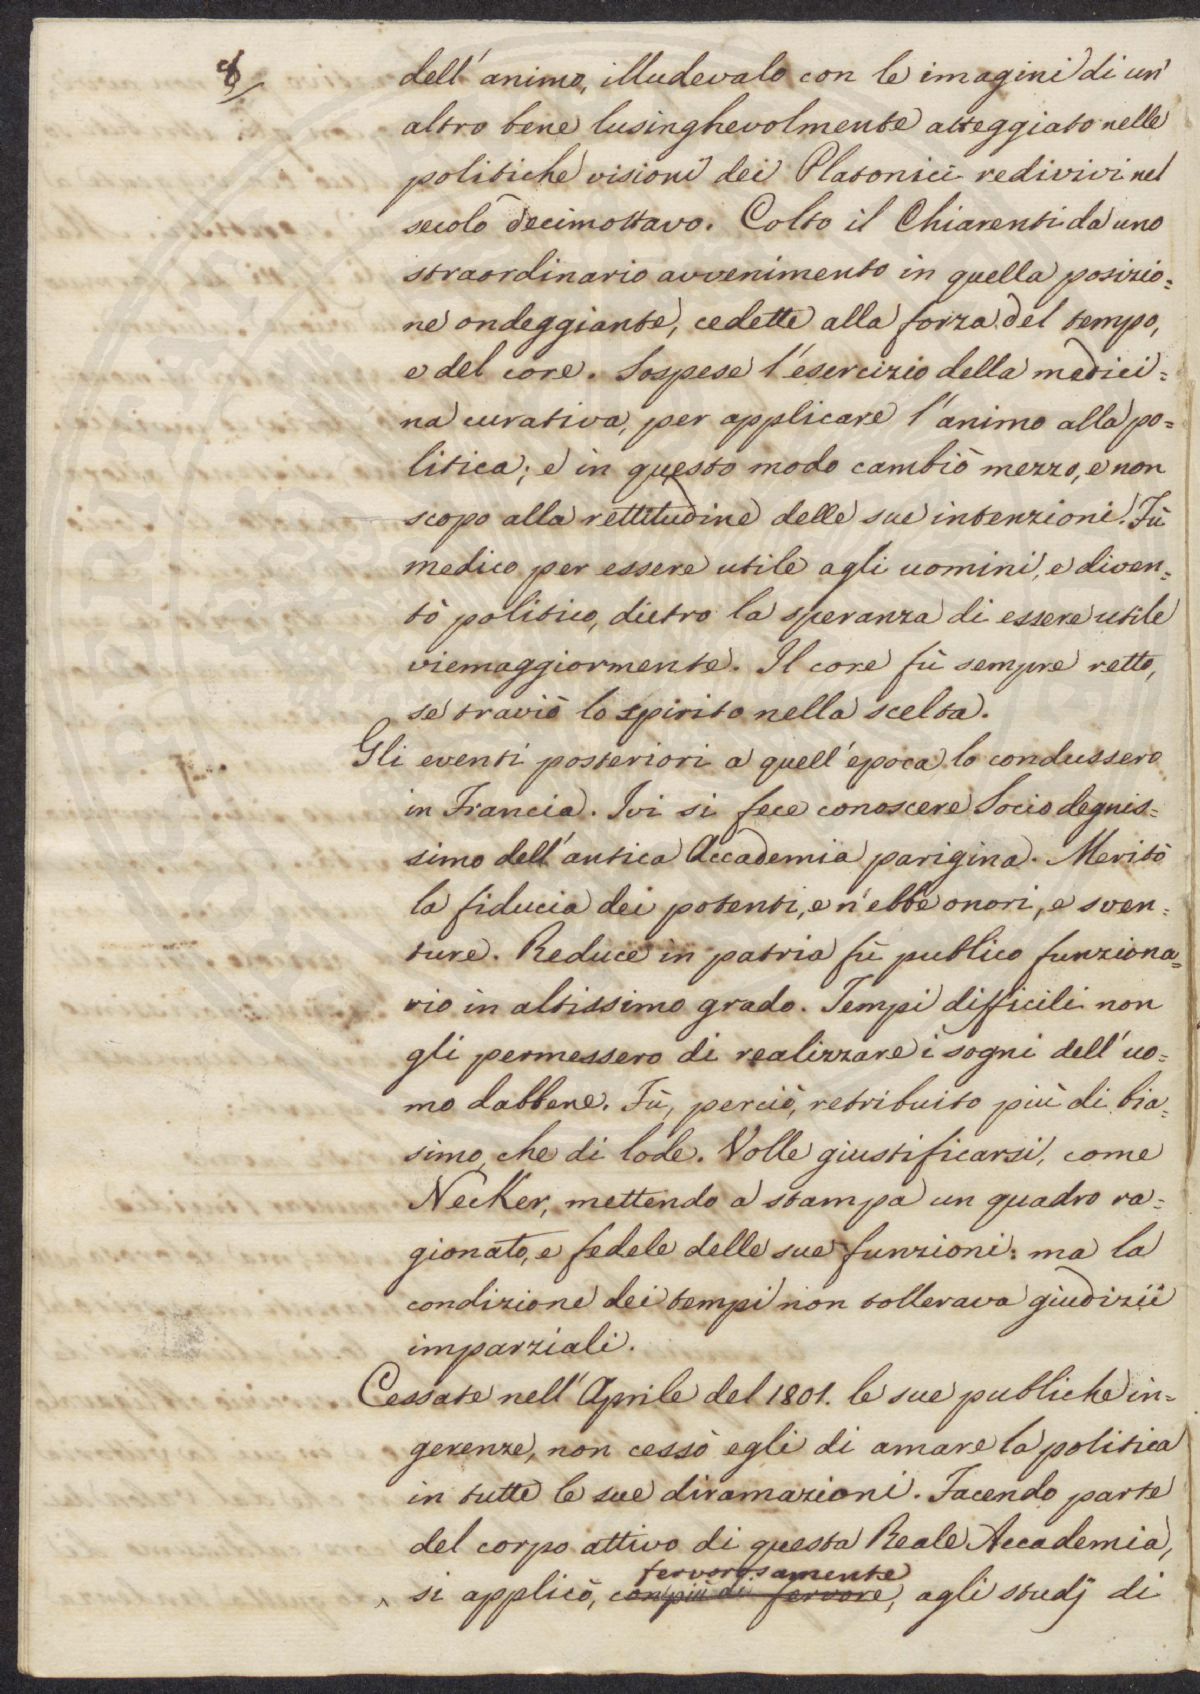 8
dell'animo, illudevalo con le imagini di un'
altro bene lusinghevolmente atteggiato nelle
politiche visioni dei Platonici redivivi nel
secolo decimottavo. Colto il Chiarenti da uno
straordinario avvenimento in quella posizio=
ne ondeggiante, cedette alla forza del tempo,
e del core. Sospese l'esercizio della medici=
na curativa, per applicare l'animo alla po=
litica; e in questo modo cambiò mezzo, e non
scopo alla rettitudine delle sue intenzioni. Fù
medico per essere utile agli uomini, e diven=
tò politico, dietro la speranza di essere utile
viemaggiormente. Il core fù sempre retto,
se traviò lo spirito nella scelta.
Gli eventi posteriori a quell'epoca lo condussero
in Francia. Ivi si fece conoscere Socio degnis=
simo dell'antica Accademia parigina. Meritò
la fiducia dei potenti, e n'ebbe onori, e sven=
ture. Reduce in patria fù publico funziona=
rio in altissimo grado. Tempi difficili non
gli permessero di realizzare i sogni dell'uo=
mo dabbene. Fù, perciò, retribuito più di bia=
simo, che di lode. Volle giustificarsi, come
Necker, mettendo a stampa un quadro ra=
gionato, e fedele delle sue funzioni: ma la
condizione dei tempi non tollerava giudizii
imparziali.
Cessate nell'Aprile del 1801. le sue publiche in=
gerenze, non cessò egli di amare la politica
in tutte le sue diramazioni. Facendo parte
del corpo attivo di questa Reale Accademia,
fervorosamente
si applicò, con più di fervore, agli studj di